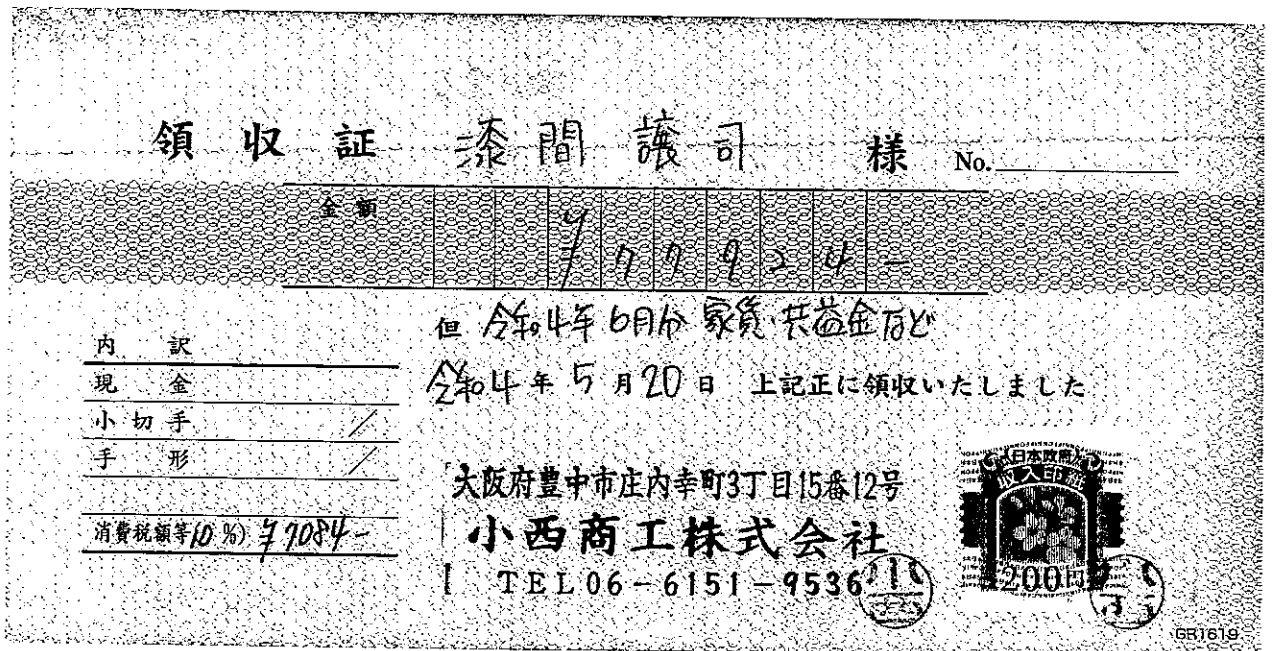 領収証 漆間 譲司 様 No.
金額 ¥77924-
但 令和4年6月分 家賃・共益金など
令和4年5月20日 上記正に領収いたしました
内訳
現金
小切手 /
手形 /
消費税額等(10%) ¥7084-
大阪府豊中市庄内幸町3丁目15番12号
小西商工株式会社
TEL06-6151-9536
日本政府
収入印紙
200円
GR1619